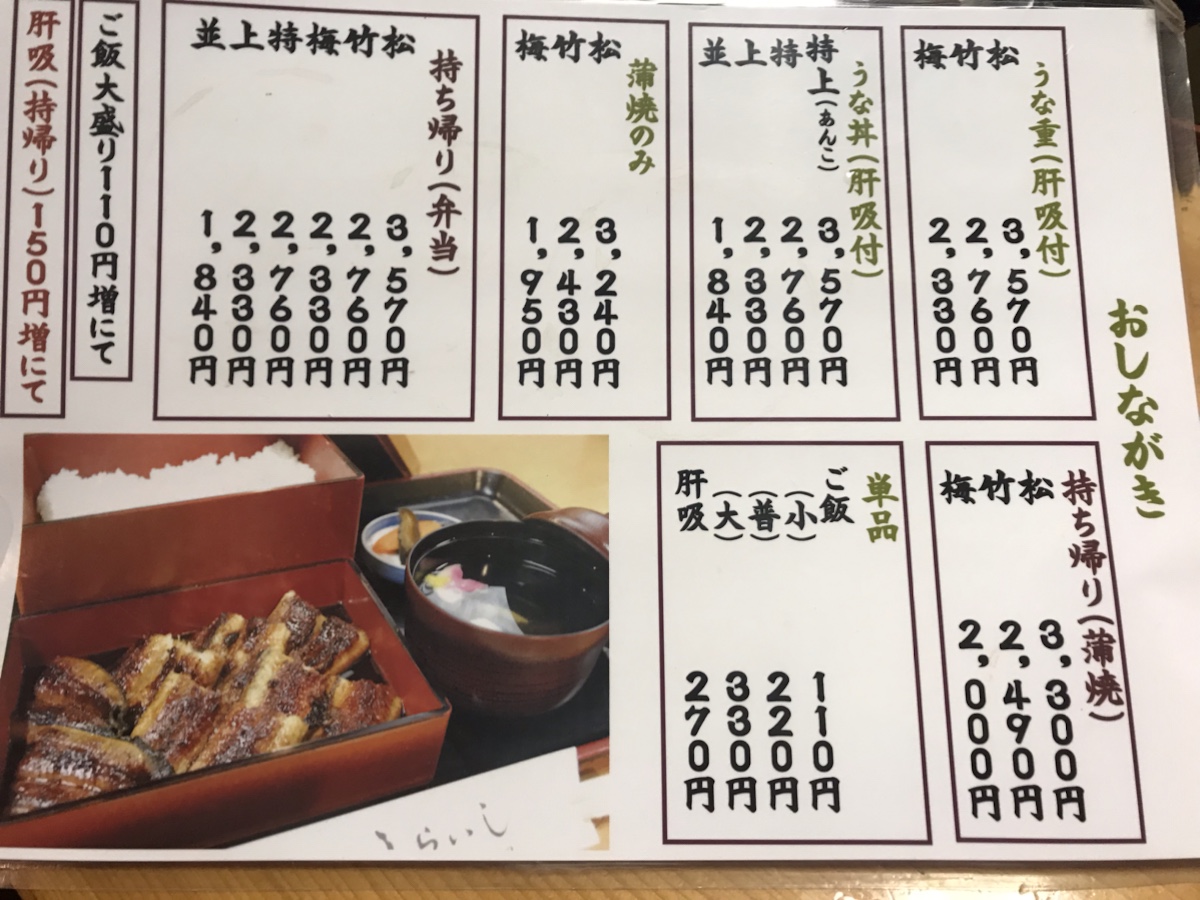 おしながき
うな重(肝吸付)
松 3,570円
竹 2,760円
梅 2,330円
うな丼(肝吸付)
特上(あんこ) 3,570円
特 2,760円
上 2,330円
並 1,840円
蒲焼のみ
松 3,240円
竹 2,430円
梅 1,950円
持ち帰り(弁当)
松 3,570円
竹 2,760円
梅 2,330円
特 2,760円
上 2,330円
並 1,840円
ご飯大盛り110円増にて
肝吸(持帰り)150円増にて
持ち帰り(蒲焼)
松 3,300円
竹 2,490円
梅 2,000円
単品
ご飯(小) 110円
(普) 220円
(大) 330円
肝吸 270円